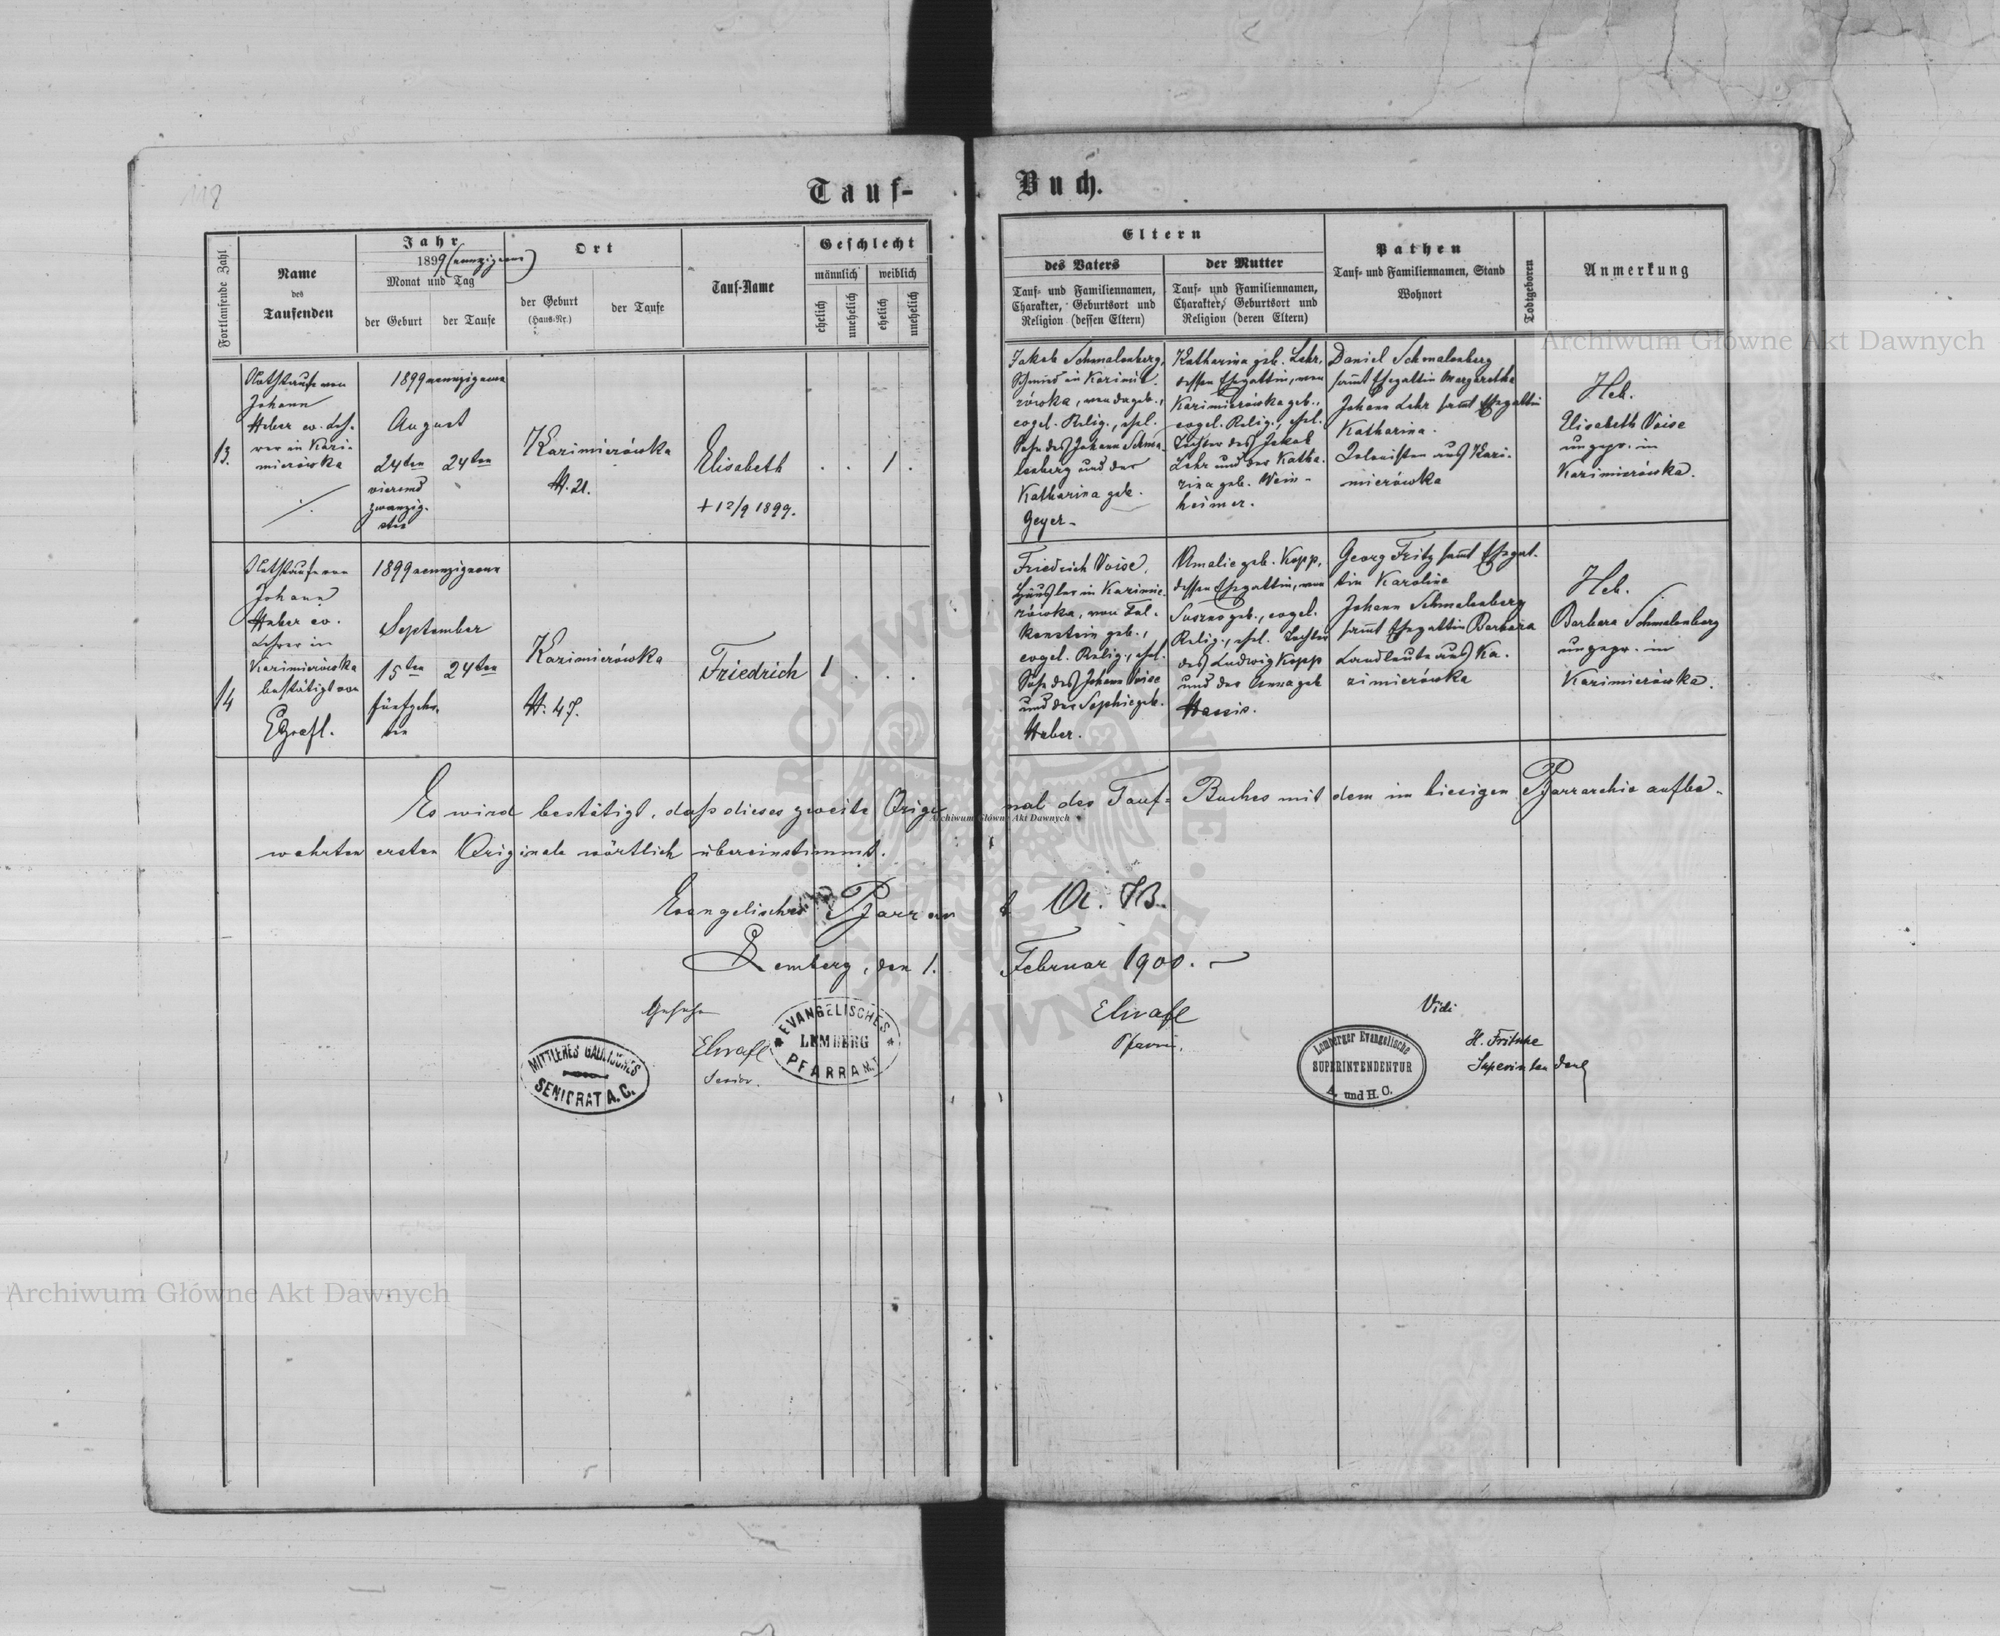 118
Tauf-
Buch.
Fortlaufende Zahl
Name
des
Taufenden
Jahr
1899 (neunzigneun)
Monat und Tag
der Geburt
der Taufe
Ort
der Geburt
(Haus-Nr.)
der Taufe
Tauf-Name
Geschlecht
männlich
weiblich
ehelich
unehelich
ehelich
unehelich
Eltern
des Vaters
Tauf- und Familiennamen,
Charakter, Geburtsort und
Religion (dessen Eltern)
der Mutter
Tauf- und Familiennamen,
Charakter, Geburtsort und
Religion (deren Eltern)
Pathen
Tauf- und Familiennamen, Stand
Wohnort
Todtgeboren
Anmerkung
13.
Nothtaufe von
Johann
Huber ev. Leh-
rer in Kazi-
mierówka
1899 neunzigneun
August
24ten
vierund
zwanzig-
sten
24ten
Kazimierówka
N. 21.
Elisabeth
+ 12/9 1899.
. . 1 .
Jakob Schmalenberg,
Schmied in Kazimie-
rówka, von da geb.,
evgel. Relig., ehel.
Sohn des Johann Schma-
lenberg und der
Katharina geb.
Geyer-
Katharina geb. Lehr,
dessen Ehegattin, von
Kazimierówka geb.,
evgel. Relig., ehel.
Tochter des Jakob
Lehr und der Katha-
rina geb. Wein-
heimer.
Daniel Schmalenberg
sammt Ehegattin Margaretha
Johann Lehr sammt Ehegattin
Katharina.
Colonisten aus Kazi-
mierówka
Heb.
Elisabeth Voise
ungepr. in
Kazimierówka.
14
Nothtaufe von
Johann
Huber ev.
Lehrer in
Kazimierówka
bestätigt von
EGrafl.
1899 neunzigneun
September
15ten
fünfzehn-
ten
24ten
Kazimierówka
N. 47.
Friedrich
1 . . .
Friedrich Voise,
Häusler in Kazimie-
rówka, von Fal-
kenstein geb.,
evgel. Relig., ehel.
Sohn des Johann Voise
und der Sophie geb.
Huber.
Amalie geb. Kopp,
dessen Ehegattin, von
geb., evgel.
Relig., ehel. Tochter
des Ludwig Kopp
und der Anna geb.
Georg Fritz sammt Ehegat-
tin Karolina
Johann Schmalenberg
sammt Ehegattin Barbara
Landleute aus Ka-
zimierówka
Heb.
Barbara Schmalenberg
ungepr. in
Kazimierówka.
Es wird bestätigt, daß dieses zweite Origi- nal des Tauf- Buches mit dem im hiesigen Pfarrarchiv aufbe-
wahrten ersten Originale wörtlich übereinstimmt.
Evangelisches Pfarramt A. B.
Lemberg, den 1. Februar 1900.
Gesehen
Senior.
MITTLERES GALIZISCHES
SENIORAT A. C.
EVANGELISCHES
LEMBERG
PFARRAMT
Pfarrer.
Lemberger Evangelische
SUPERINTENDENTUR
A. und H. C.
Vidi
H. Fritsche
Superintendent
Archiwum Główne Akt Dawnych
Archiwum Główne Akt Dawnych
Archiwum Główne Akt Dawnych
ARCHIWUM GŁÓWNE AKT DAWNYCH